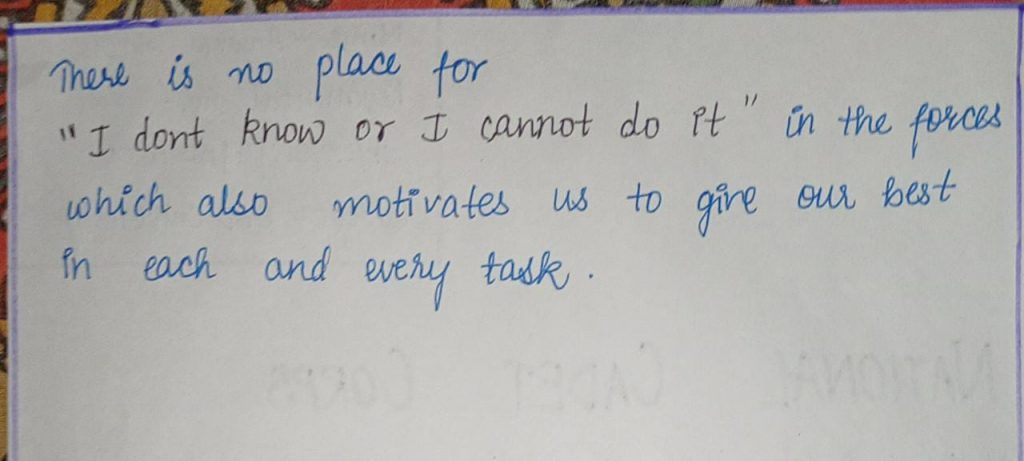 There is no place for
"I dont know or I cannot do it" in the forces
which also motivates us to give our best
in each and every task.
NATIONAL CADET CORPS